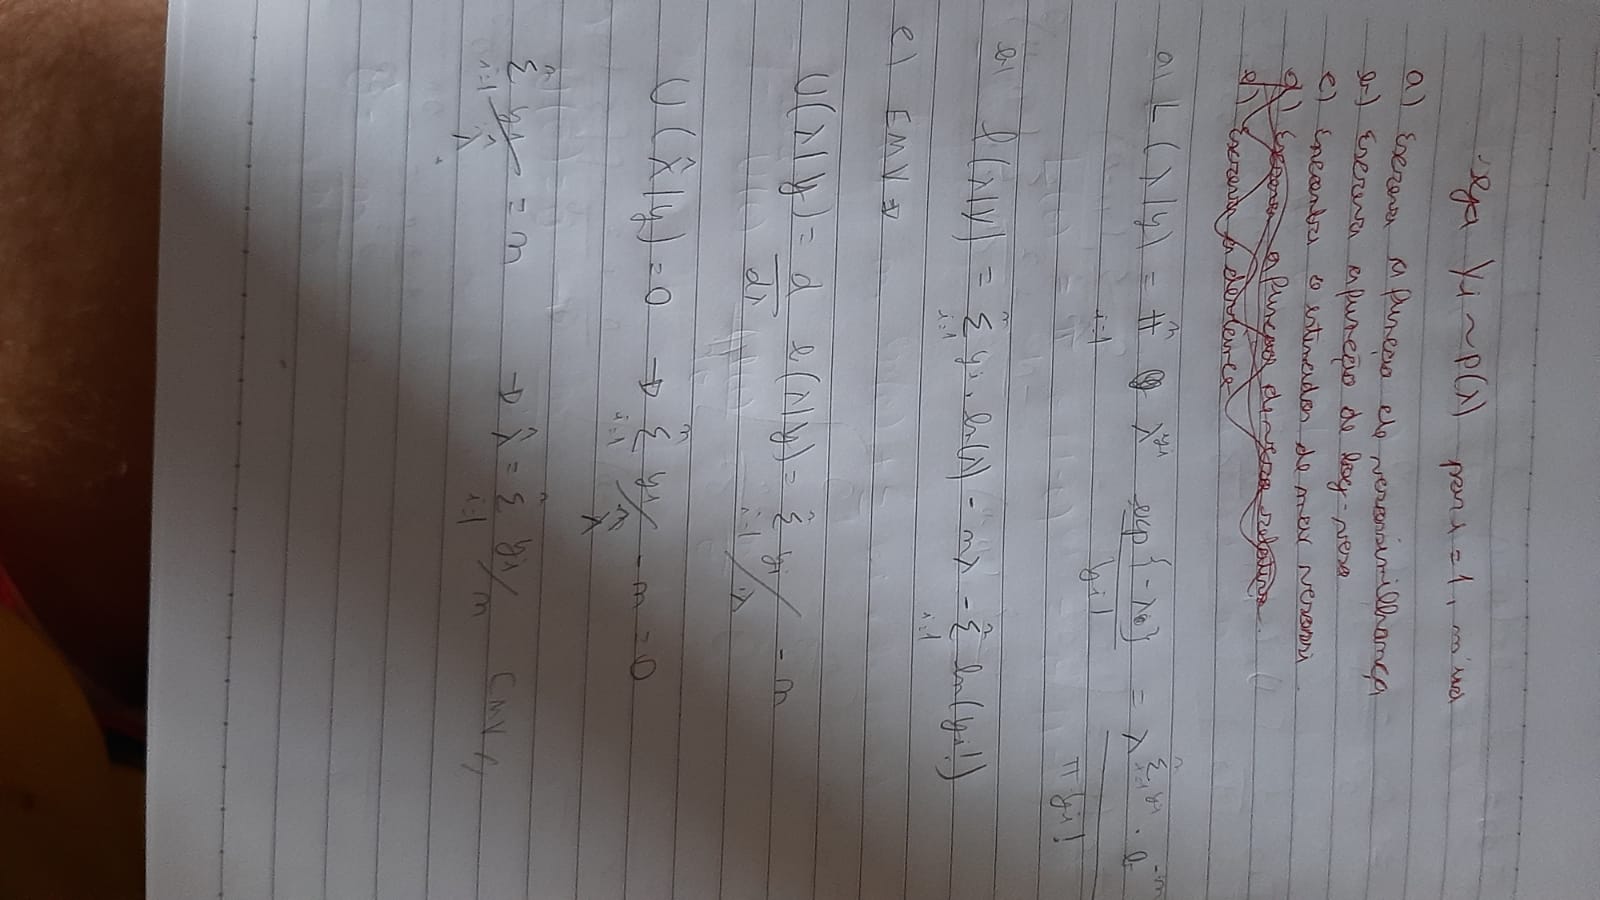 Seja Yi ~ P(λ) para i = 1, n iid
a) Escreva a função de verossimilhança
b) Escreva a função de log-vero
c) Encontre o estimador de max verossi
d) Escreva a função de vero relativa
e) Escreva a deviance
a) L(λ|y) = π^n_{i=1} λ^{yi} exp{-λ}/yi! = λ^{Σ^n_{i=1} yi} · e^{-n}/π yi!
b) l(λ|y) = Σ^n_{i=1} yi · ln(λ) - nλ - Σ^n_{i=1} ln(yi!)
c) EMV ⇒
U(λ|y) = d/dλ l(λ|y) = Σ^n_{i=1} yi/λ - n
U(λ̂|y) = 0 → Σ^n_{i=1} yi/λ̂ - n = 0
Σ^n_{i=1} yi/λ̂ = n → λ̂ = Σ^n_{i=1} yi/n EMV //